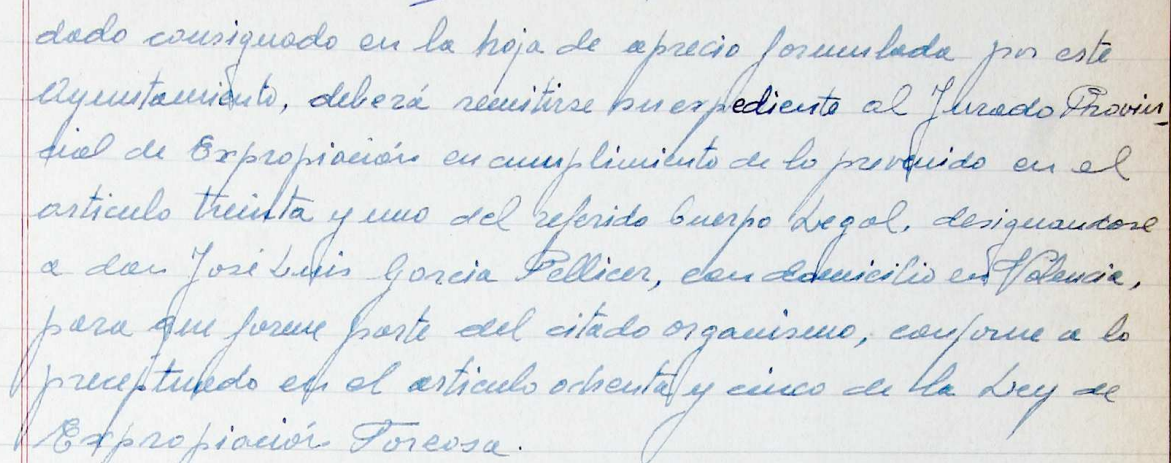 dado consignado en la hoja de aprecio formulada por este
Ayuntamiento, deberá remitirse su expediente al Jurado Provin-
cial de Expropiación en cumplimiento de lo prevenido en el
articulo treinta y uno del referido Cuerpo Legal, designandose
a don José Luis Garcia Pellicer, con domicilio en Valencia,
para que forme parte del citado organismo, conforme a lo
preceptuado en el articulo ochenta y cinco de la Ley de
Expropiación Forzosa.